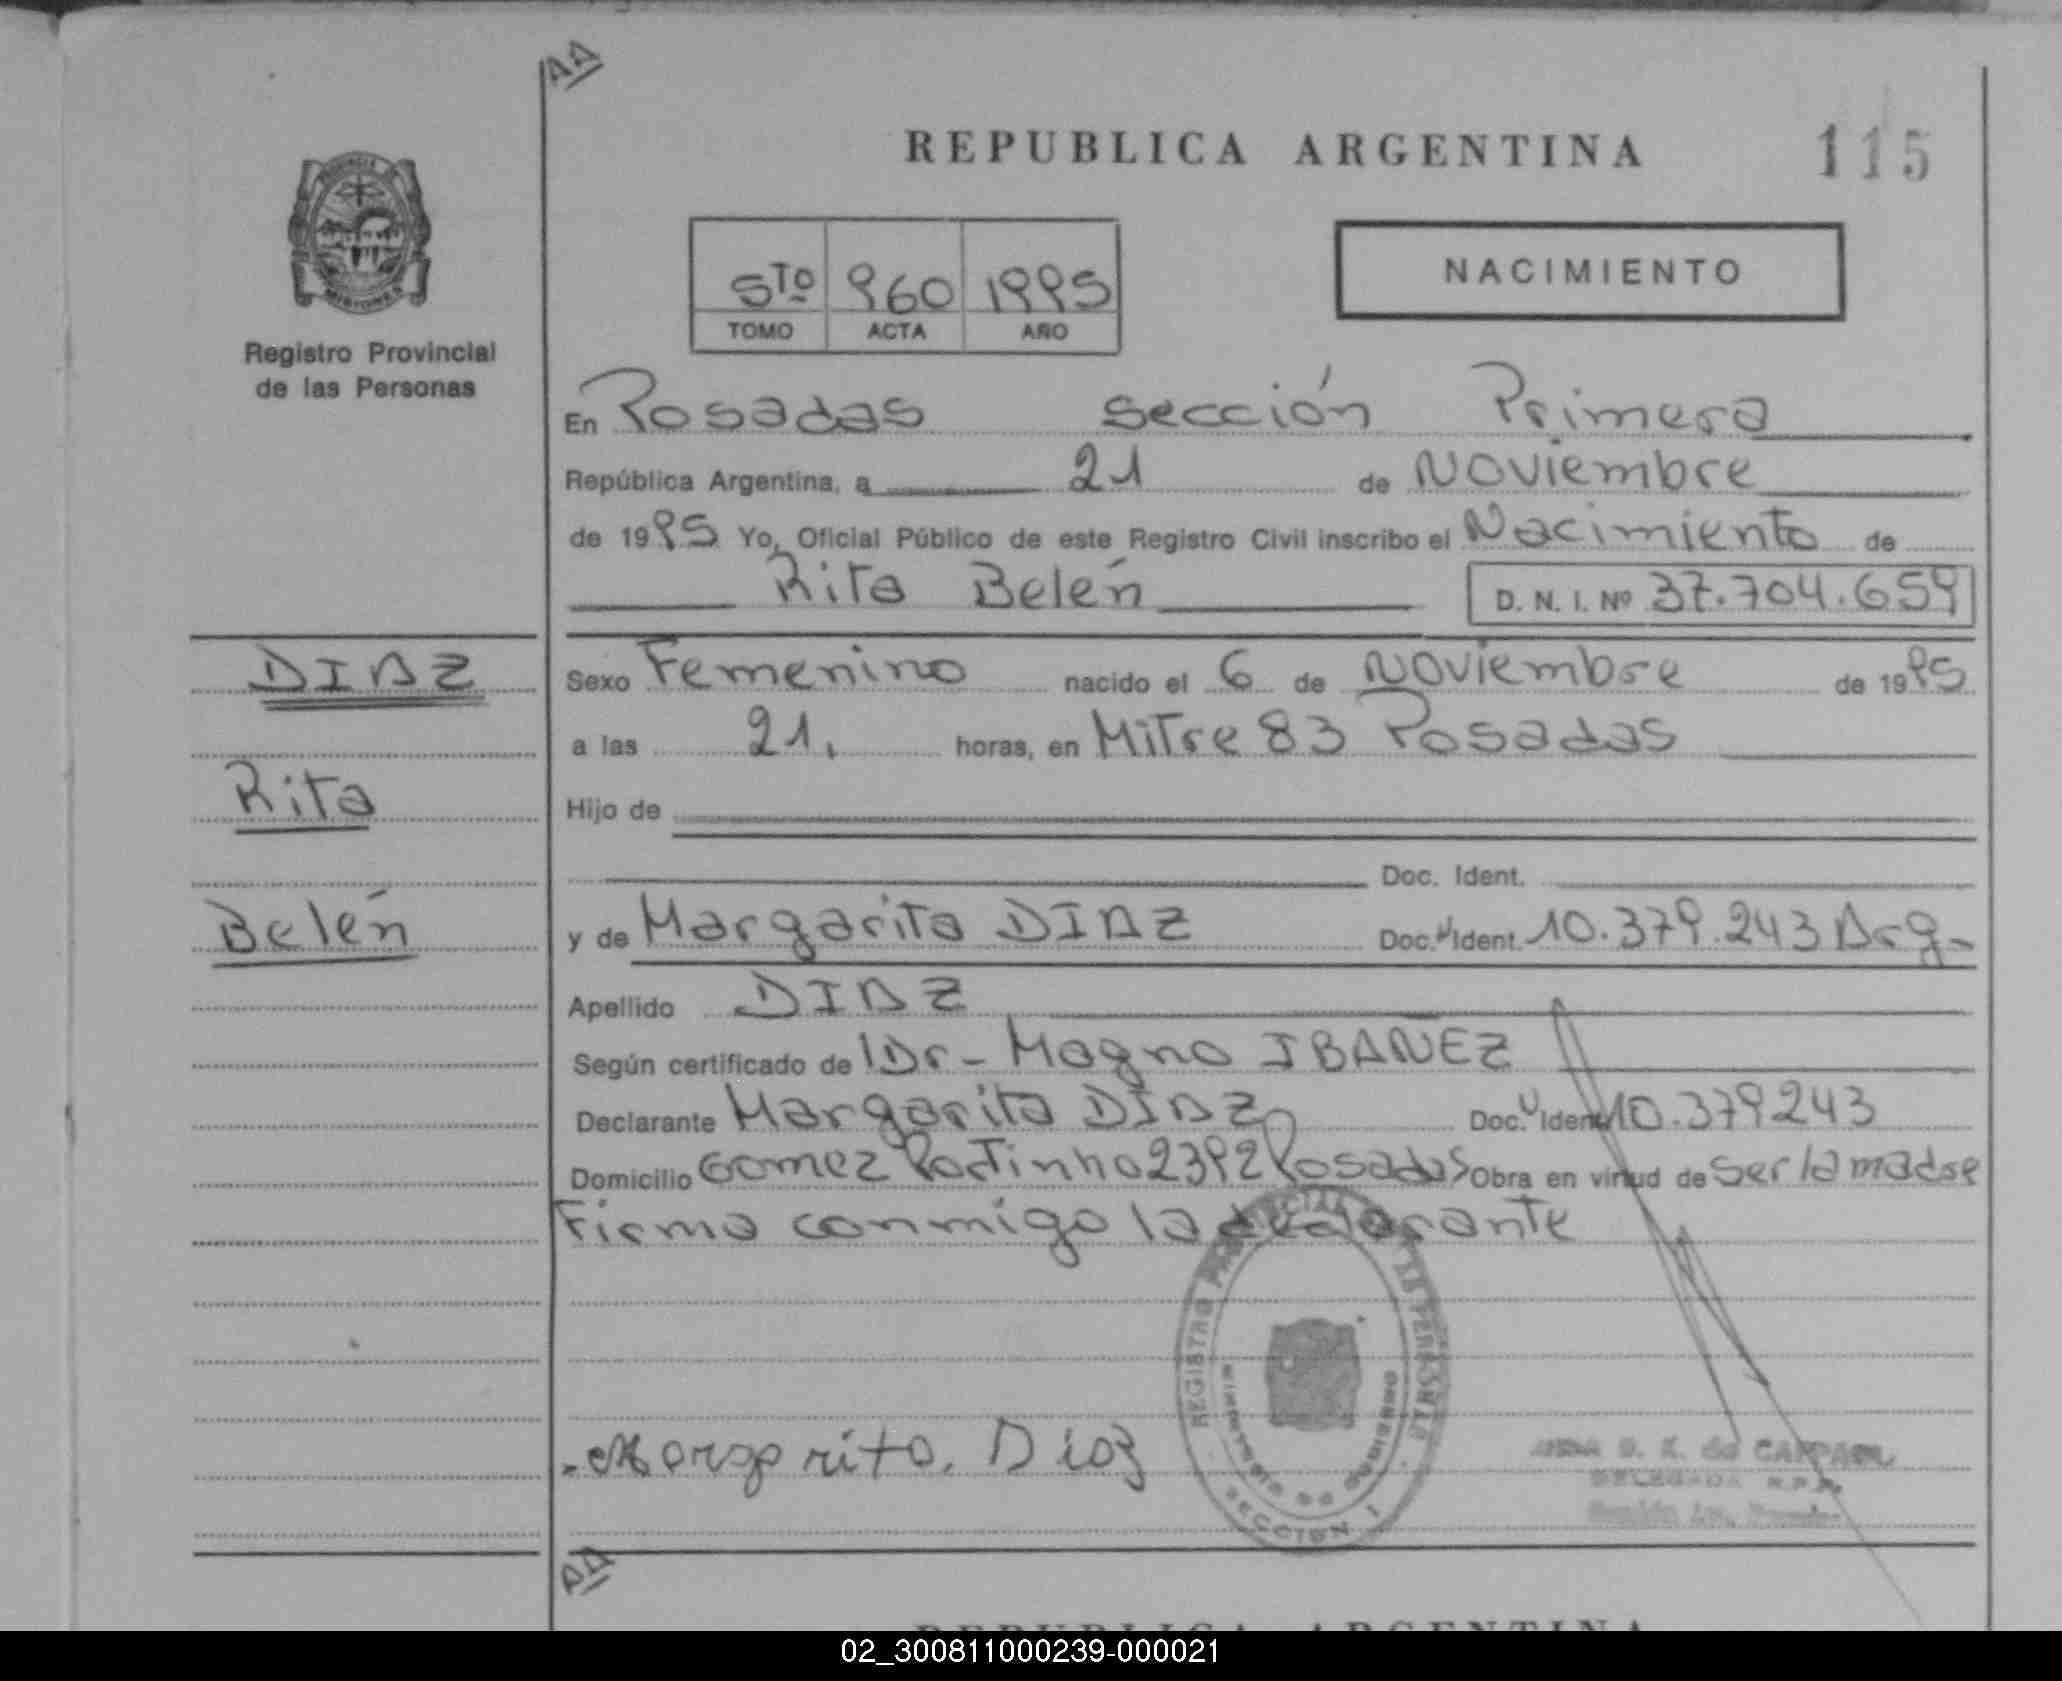 AA
REPUBLICA ARGENTINA
115
PROVINCIA
MISIONES
Registro Provincial
de las Personas
5TO 960 1995
TOMO ACTA AÑO
NACIMIENTO
En Posadas Sección Primera
República Argentina, a 21 de Noviembre
de 1995 Yo, Oficial Público de este Registro Civil inscribo el Nacimiento de
Rita Belén D. N. I. Nº 37.704.659
DIAZ
Rita
Belén
Sexo Femenino nacido el 6 de Noviembre de 1995
a las 21. horas, en Mitre 83 Posadas
Hijo de
Doc. Ident.
y de Margarita DIAZ Doc. Ident. 10.379.243 Arg-
Apellido DIAZ
Según certificado de Dr- Magno IBAÑEZ
Declarante Margarita DIAZ Doc. Ident. 10.379243
Domicilio Gomez Portinho 2392 Posadas Obra en virtud de ser la madre
Firma conmigo la declarante
REGISTRO PROVINCIAL DE LAS PERSONAS
MINISTERIO DE GOBIERNO
SECCION 1
Margarita. Diaz
DELEGADA R.P.P.
AA
REPUBLICA ARGENTINA
02_300811000239-000021